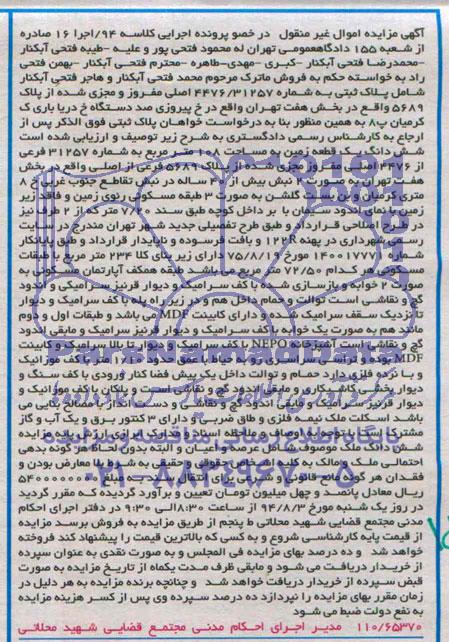 آگهی مزایده اموال غیر منقول در خصو پرونده اجرایی کلاسه ۹۴/اجرا ۱۶ صادره
از شعبه ۱۵۵ دادگاهعمومی تهران له محمود فتحی پور و علیه -طیبه فتحی آبکنار
-محمدرضا فتحی آبکنار -کبری -مهدی-طاهره -محترم فتحی آبکنار -بهمن فتحی
راد به خواسته حکم به فروش ماترک مرحوم محمد فتحی آبکنار و هاجر فتحی آبکنار
شامل پلاک ثبتی به شماره ۴۴۷۶/۳۱۲۵۷ اصلی مفروز و مجزی شده از پلاک
۵۶۸۹ واقع در بخش هفت تهران واقع در خ پیروزی صد دستگاه خ دریا باری ک
کرمیان پ۸ به همین منظور بنا به درخواست خواهان پلاک ثبتی فوق الذکر پس از
ارجاع به کارشناس رسمی دادگستری به شرح زیر توصیف و ارزیابی شده است
شش دانگ یک قطعه زمین به مساحت ۱۰۸ متر مربع به شماره ۳۱۲۵۷ فرعی
از ۴۴۷۶ اصلی مفروز مجزی شده از پلاک ۵۶۸۹ فرعی از اصلی واقع در بخش
هفت تهران به صورت ۲ نبش بیش از ۳۰ ساله در نبش تقاطع جنوب غربی خ ۸
متری کرمیان و بن بست گلشن به صورت ۳ طبقه مسکونی روی زمین و فاقد زیر
زمین با نمای اندود سیمان با بر داخل کوچه طبق سند ۷/۰۰ متر که از ۲ طرف نیز
در طرح اصلاحی قرار دارد و طبق طرح تفصیلی جدید شهر تهران مندرج در سایت
رسمی شهرداری در پهنه R۱۲۲ و بافت فرسوده و ناپایدار قرار دارد و طبق پایانکار
شماره ۱۴۰۰۱۷۷۷ مورخ ۷۵/۸/۱۶ دارای زیر بنای کلا ۲۳۴ متر مربع با طبقات
مسکونی هر کدام ۷۲/۵۰ متر مربع می باشد طبقه همکف آپارتمان مسکونی به
صورت ۲ خوابه و بازسازی شده با کف سرامیک و دیوار قرنیز سرامیکی و اندود
گچ و نقاشی است توالت و حمام داخل هم و در زیر راه پله با کف سرامیک و دیوار
تا نزدیک سقف سرامیک شده و دارای کابینت MDF می باشد و طبقات اول و دوم
مانند هم به صورت یک خوابه با کف سرامیک و دیوار قرنیز سرامیک و مابقی اندود
گچ و نقاشی است آشپزخانه NEPO با کف سرامیک و دیوار تا بالا سرامیک و کابینت
MDF بوده و تراس
و با نرده فلزی دارد حمام و توالت داخل یک پیش فضا کنار ورودی با کف سنگ و
دیوار بخشی کاشیکاری و مابقی اندود گچ و نقاشی است و پلکان با کف موزائیک و
دیوار قرنیز سرامیک و مابقی اندود گچ و نقاشی و دست انداز با مصالح بنایی می
باشد اسکلت ملک نیمه فلزی و طاق ضربی و دارای ۳ کنتور برق و یک آب و گاز
مشترک است
شش دانگ ملک موصوف شامل عرصه و اعیان و البته بدون لحاظ هر گونه بدهی
احتمالی ملک و مالک به کلیه اشخاص حقوقی و حقیقی به شرط بلا معارض بودن و
۵۴۰۰۰۰۰۰۰۰
ریال معادل پانصد و چهل میلیون تومان تعیین و برآورد گردیده که مقرر گردید
در روز یک شنبه مورخ ۹۴/۸/۳ از ساعت ۸:۳۰الی ۹:۳۰ در دفتر اجرای احکام
مدنی مجتمع قضایی شهید محلاتی ط پنجم از طریق مزایده به فروش برسد مزایده
از قیمت پایه کارشناسی شروع و به کسی که بالاترین قیمت را پیشنهاد کند فروخته
خواهد شد و ده درصد بهای مزایده فی المجلس و به صورت نقدی به عنوان سپرده
از خریدار دریافت می شود و مابقی ظرف مدت یکماه از تاریخ مزایده به صورت
قبض سپرده از خریدار دریافت خواهد شد و چنانچه برنده مزایده به هر دلیل در
زمان مقرر بهای مزایده را نپردازد ده درصد سپرده وی پس از کسر هزینه مزایده
به نفع دولت ضبط می شود
۱۱۰/۶۵۳۷۰ مدیر اجرای احکام مدنی مجتمع قضایی شهید محلاتی